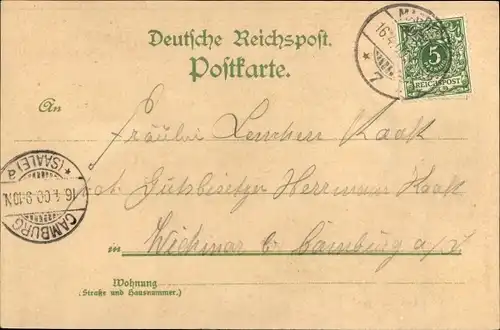 Deutsche Reichspost.
Postkarte.
5
REICHSPOST
16.4
7
An
Fräulein Lenchen Raaßt
Gutsbesitzer Herrmann Raaßt
in Wichmar b. Camburg a/S.
CAMBURG
16.4.00.9-10N.
* (SAALE) a
Wohnung
(Straße und Hausnummer.)